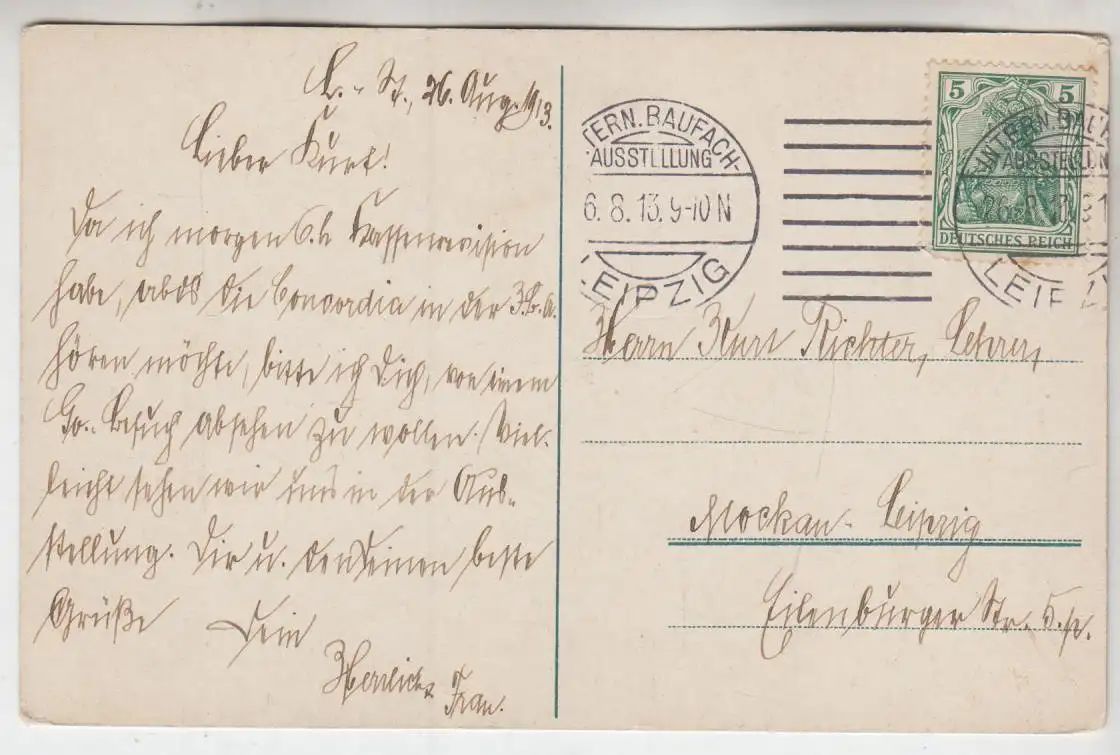 L.-St., 26. Aug. 1913.
Lieber Kurt!
Da ich morgen Kassenrevision
habe, die Concordia in der I.B.A.
hören möchte, bitte ich Dich, von
Besuch absehen zu wollen. Viel-
leicht sehen wir uns in der Aus-
stellung. Dir u. den Deinen beste
Grüße Dein
INTERN. BAUFACH-
AUSSTELLUNG
6.8.13.9-10N
LEIPZIG
5 5
DEUTSCHES REICH
INTERN. BAUFA
AUSSTELLUN
26.8.13.9-1
LEIPZ
Herrn Kurt Richter, Lehrer,
Mockau-Leipzig
Eilenburger Str. 5.p.